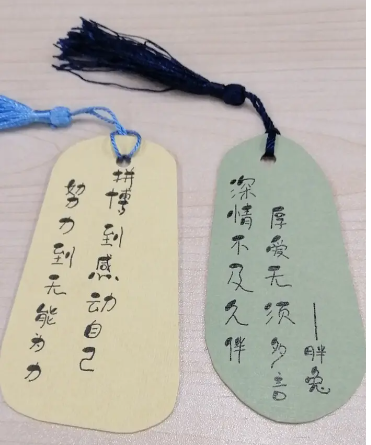 努力到无能为力
拼搏到感动自己
深情不及久伴
厚爱无须多言
——胖兔